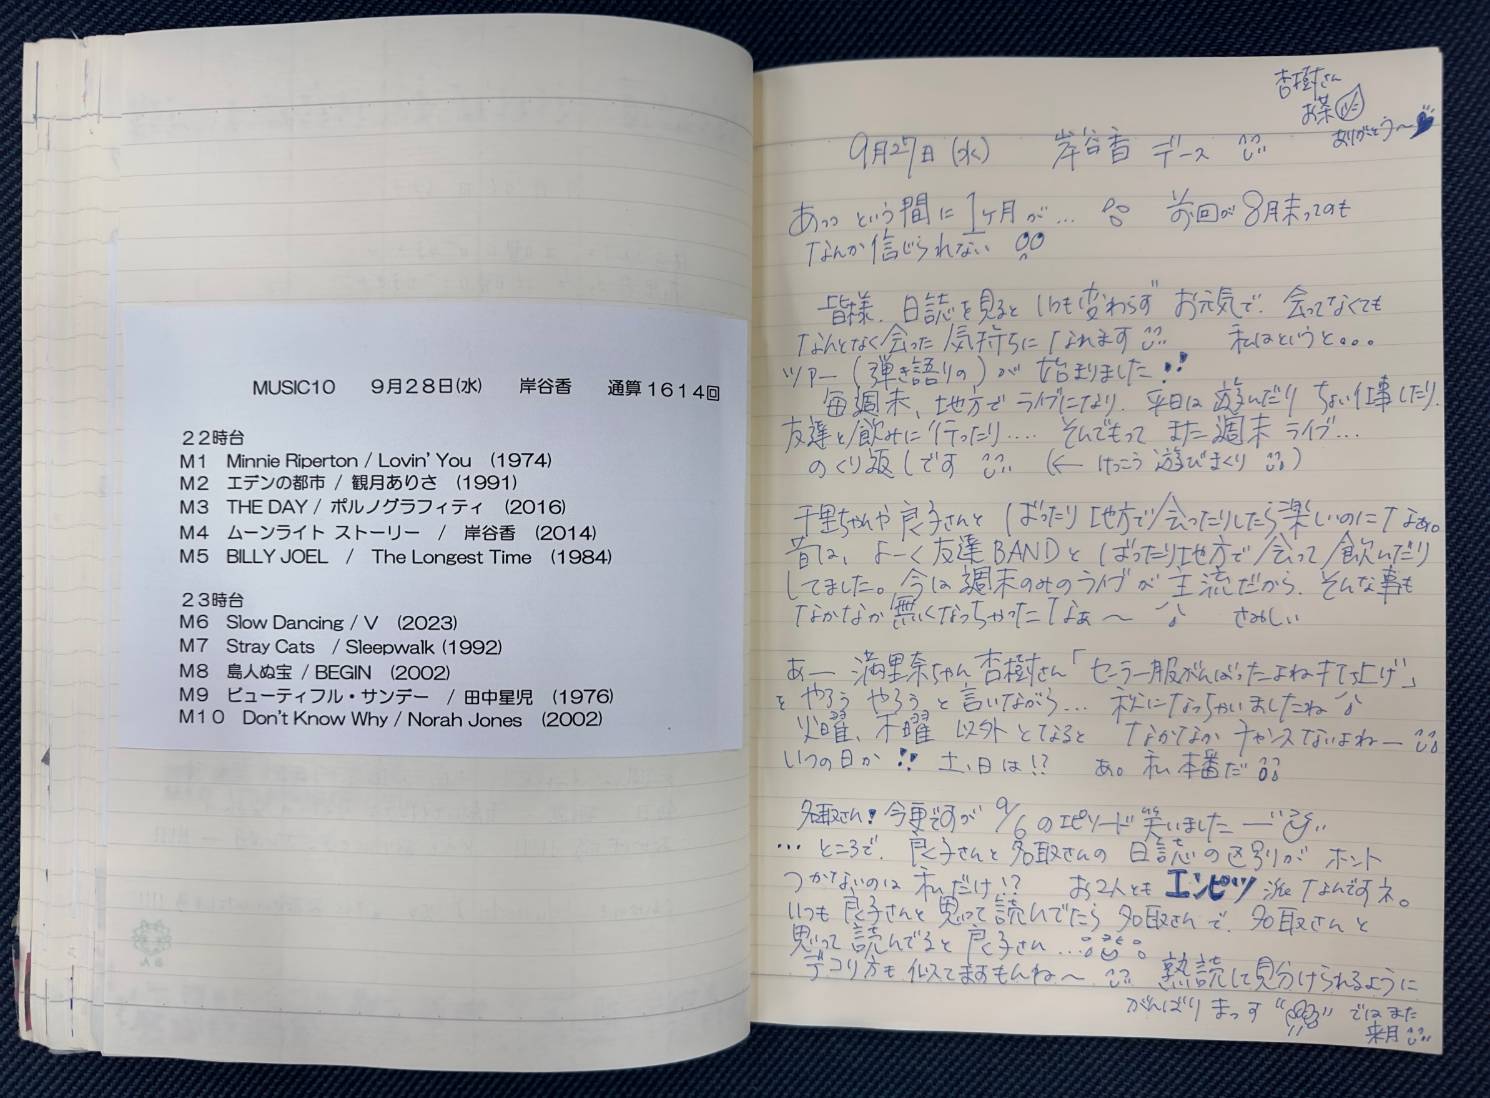 MUSIC10 9月28日(水) 岸谷香 通算1614回
22時台
M1 Minnie Riperton / Lovin' You (1974)
M2 エデンの都市 / 観月ありさ (1991)
M3 THE DAY / ポルノグラフィティ (2016)
M4 ムーンライト ストーリー / 岸谷香 (2014)
M5 BILLY JOEL / The Longest Time (1984)
23時台
M6 Slow Dancing / V (2023)
M7 Stray Cats / Sleepwalk (1992)
M8 島人ぬ宝 / BEGIN (2002)
M9 ビューティフル・サンデー / 田中星児 (1976)
M10 Don't Know Why / Norah Jones (2002)
杏樹さん
お茶
ありがとう〜
9月27日(水) 岸谷香 デース
あっっ という間に1ヶ月が... 前回が8月末ってのも
なんか信じられない
皆様、日誌を見ると いつも変わらず お元気で、会ってなくても
なんとなく会った気持ちになれます 私はというと。。。
ツアー(弾き語りの)が 始まりました!!
毎週末、地方で ライブになり、平日は 遊んだり ちょい仕事したり、
友達と飲みに行ったり.... そんでもって また週末 ライブ...
のくり返しです (← けっこう 遊びまくり)
千里ちゃんや 良子さんと ばったり地方で会ったりしたら楽しいのになぁ。
昔は、よーく友達BANDと ばったり地方で会って飲んだり
してました。今は週末のみのライブが 主流だから、そんな事も
なかなか無くなっちゃったなぁ〜 さみしい
あー 満里奈ちゃん 杏樹さん「セーラー服がんばったよね打ち上げ」
を やろう やろう と言いながら... 秋になっちゃいましたね
火曜、木曜 以外となると なかなか チャンスないよねー
いつの日か!! 土、日は!? あ。私 本番だ
名取さん! 今更ですが 9/6のエピソード 笑いました ー
... ところで、良子さんと名取さんの 日誌の区別が ホント
つかないのは 私だけ!? お2人とも エンピツ 派なんですネ。
いつも良子さんと思って読んでたら 名取さんで、名取さんと
思って 読んでると 良子さん...
デコり方も 似てますもんね〜 熟読して見分けられるように
がんばりまっす ではまた
来月